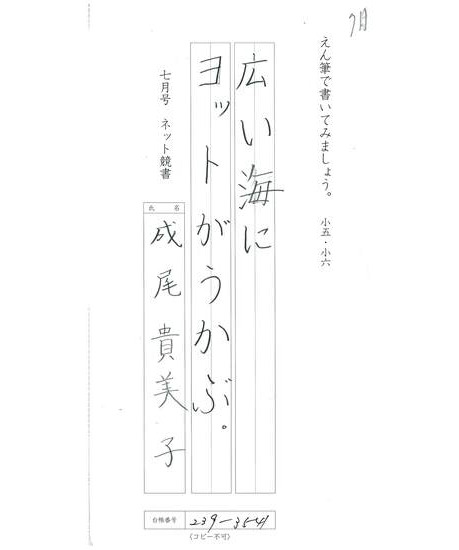 7月
えん筆で書いてみましょう。 小五・小六
広い海に
ヨットがうかぶ。
七月号 ネット競書
氏名
成尾貴美子
台帳番号 239-3541
(コピー不可)